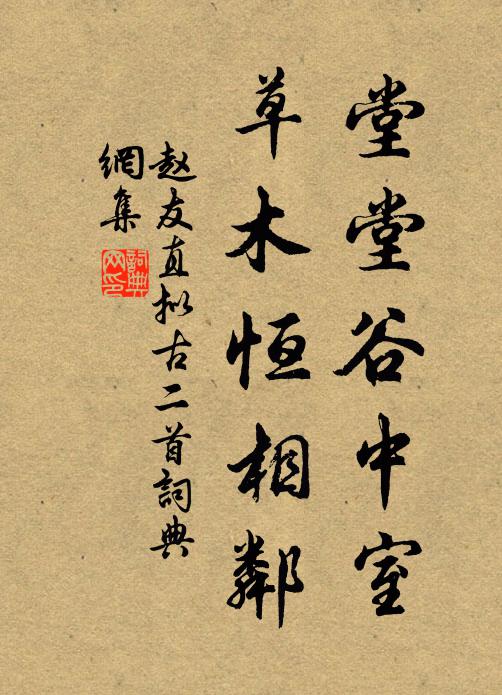 堂堂谷中室
草木恒相鄰
赵友直拟古二首詞典
網集
詞典网印